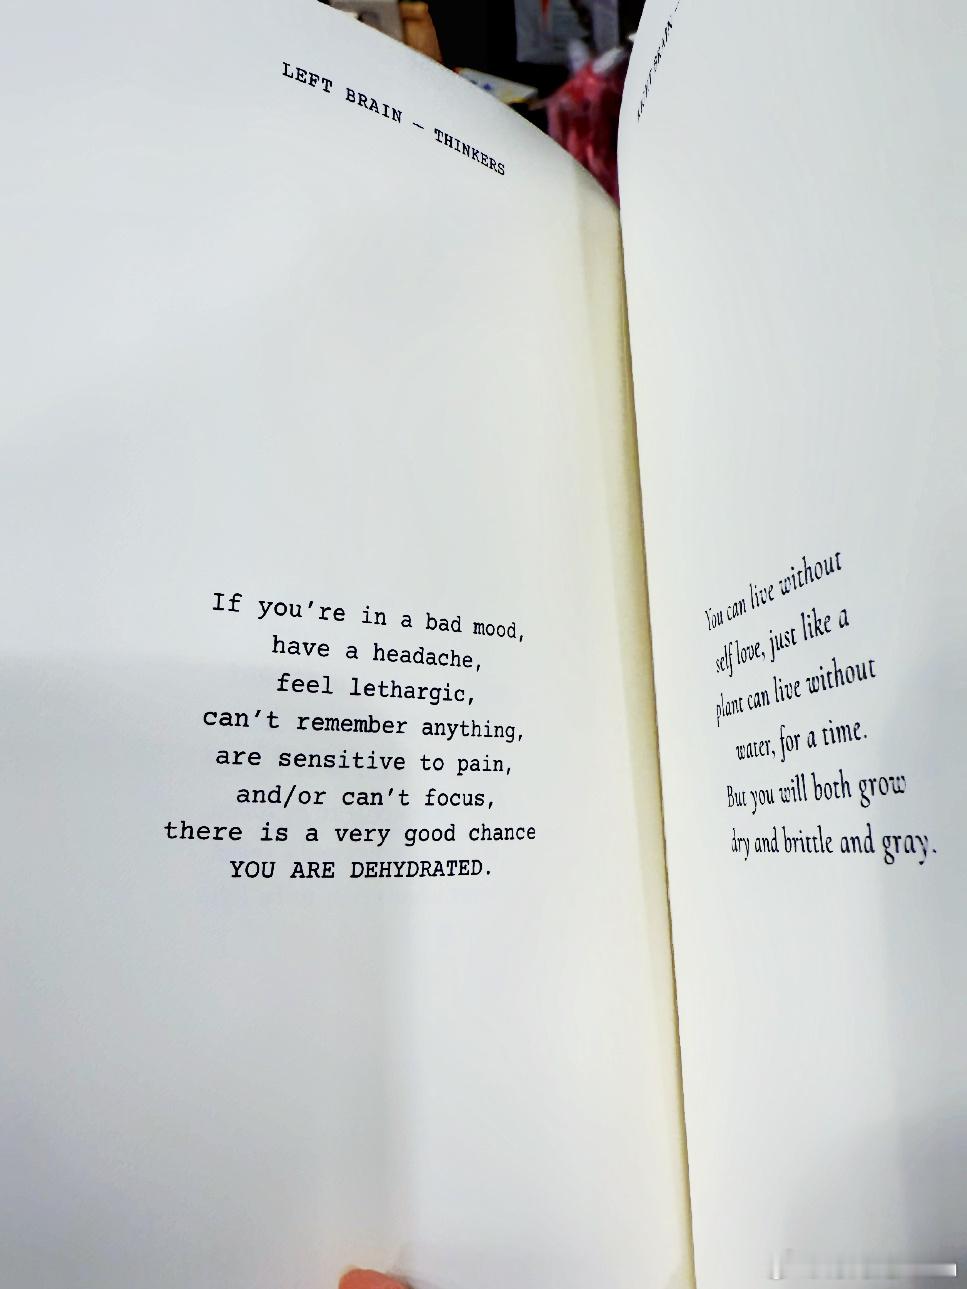 LEFT BRAIN – THINKERS
If you're in a bad mood,
have a headache,
feel lethargic,
can't remember anything,
are sensitive to pain,
and/or can't focus,
there is a very good chance
YOU ARE DEHYDRATED.
RIGHT BRAIN –
You can live without
self love, just like a
plant can live without
water, for a time.
But you will both grow
dry and brittle and gray.